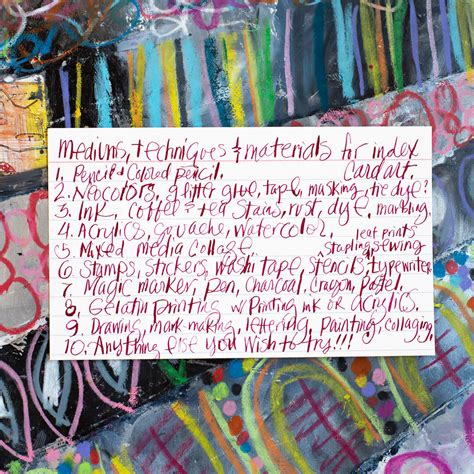 Mediums, techniques & materials for index
card art.
1. Pencil & Colored pencil.
2. Neocolors, glitter glue, tape, masking, tie dye?
3. Ink, coffee & tea stains, rust, dye, marbling.
4. Acrylics, gouache, watercolor.
leaf prints
5. Mixed media collage. Stapling, sewing
6. Stamps, stickers, washi tape, stencils, typewriter
7. Magic marker, pen, charcoal, crayon, pastel.
8. Gelatin printing w/ printing ink or acrylics.
9. Drawing, mark-making, lettering, painting, collaging.
10. Anything else you wish to try!!!